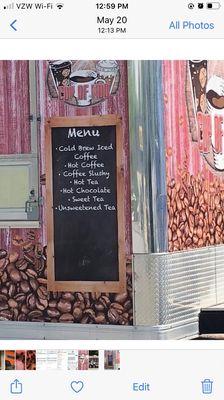 VZW Wi-Fi
12:59 PM
May 20
12:13 PM
All Photos
Menu
• Cold Brew Iced
Coffee
• Hot Coffee
• Coffee Slushy
• Hot Tea
• Hot Chocolate
• Sweet Tea
• Unsweetened Tea
Edit